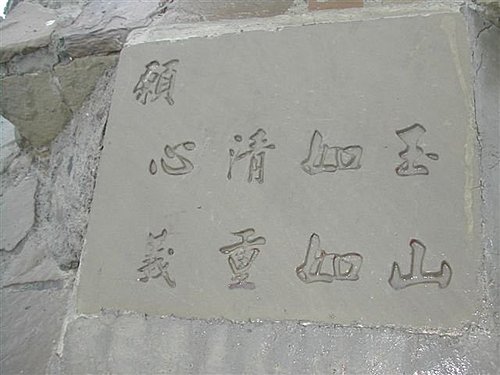 願
心清如玉
義重如山